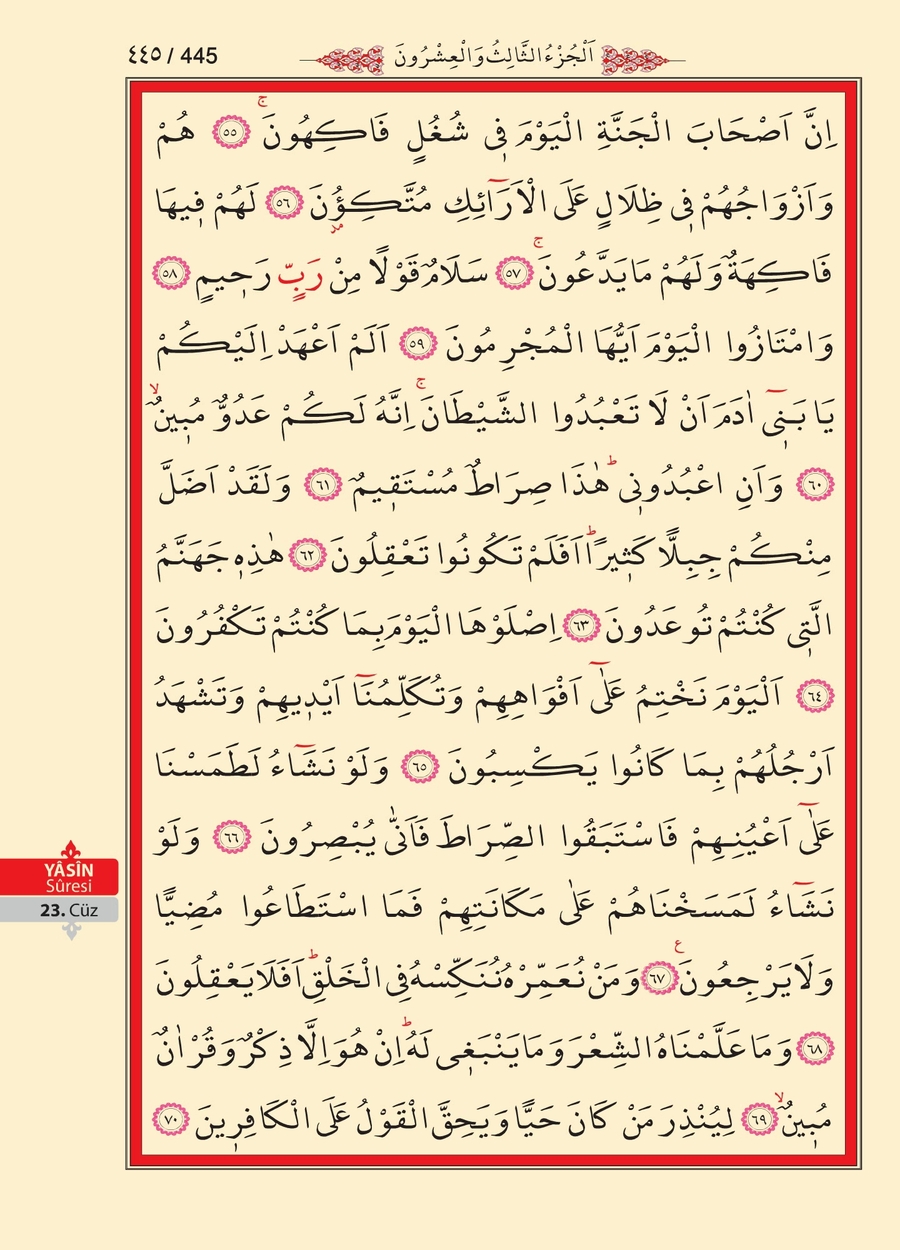 ٤٤٥ / 445
اَلْجُزْءُ الثَّالِثُ وَالْعِشْرُونَ
اِنَّ اَصْحَابَ الْجَنَّةِ الْيَوْمَ فٖي شُغُلٍ فَاكِهُونَۚ ﴿٥٥﴾ هُمْ
وَاَزْوَاجُهُمْ فٖي ظِلَالٍ عَلَى الْاَرَٓائِكِ مُتَّكِؤُ۫نَ ﴿٥٦﴾ لَهُمْ فٖيهَا
فَاكِهَةٌ وَلَهُمْ مَا يَدَّعُونَۚ ﴿٥٧﴾ سَلَامٌ قَوْلًا مِنْ رَبٍّ رَحٖيمٍ ﴿٥٨﴾
وَامْتَازُوا الْيَوْمَ اَيُّهَا الْمُجْرِمُونَ ﴿٥٩﴾ اَلَمْ اَعْهَدْ اِلَيْكُمْ
يَا بَنٖٓي اٰدَمَ اَنْ لَا تَعْبُدُوا الشَّيْطَانَۚ اِنَّهُ لَكُمْ عَدُوٌّ مُبٖينٌۙ
﴿٦٠﴾ وَاَنِ اعْبُدُونٖيؕ هٰذَا صِرَاطٌ مُسْتَقٖيمٌ ﴿٦١﴾ وَلَقَدْ اَضَلَّ
مِنْكُمْ جِبِلًّا كَثٖيرًاؕ اَفَلَمْ تَكُونُوا تَعْقِلُونَ ﴿٦٢﴾ هٰذِهٖ جَهَنَّمُ
الَّتٖي كُنْتُمْ تُوعَدُونَ ﴿٦٣﴾ اِصْلَوْهَا الْيَوْمَ بِمَا كُنْتُمْ تَكْفُرُونَ
﴿٦٤﴾ اَلْيَوْمَ نَخْتِمُ عَلٰٓى اَفْوَاهِهِمْ وَتُكَلِّمُنَٓا اَيْدٖيهِمْ وَتَشْهَدُ
اَرْجُلُهُمْ بِمَا كَانُوا يَكْسِبُونَ ﴿٦٥﴾ وَلَوْ نَشَٓاءُ لَطَمَسْنَا
عَلٰٓى اَعْيُنِهِمْ فَاسْتَبَقُوا الصِّرَاطَ فَاَنّٰى يُبْصِرُونَ ﴿٦٦﴾ وَلَوْ
نَشَٓاءُ لَمَسَخْنَاهُمْ عَلٰى مَكَانَتِهِمْ فَمَا اسْتَطَاعُوا مُضِيًّا
وَلَا يَرْجِعُونَ ع ﴿٦٧﴾ وَمَنْ نُعَمِّرْهُ نُنَكِّسْهُ فِي الْخَلْقِؕ اَفَلَا يَعْقِلُونَ
﴿٦٨﴾ وَمَا عَلَّمْنَاهُ الشِّعْرَ وَمَا يَنْبَغٖي لَهُؕ اِنْ هُوَ اِلَّا ذِكْرٌ وَقُرْاٰنٌ
مُبٖينٌۙ ﴿٦٩﴾ لِيُنْذِرَ مَنْ كَانَ حَيًّا وَيَحِقَّ الْقَوْلُ عَلَى الْكَافِرٖينَ ﴿٧٠﴾
YÂSÎN
Sûresi
23. Cüz